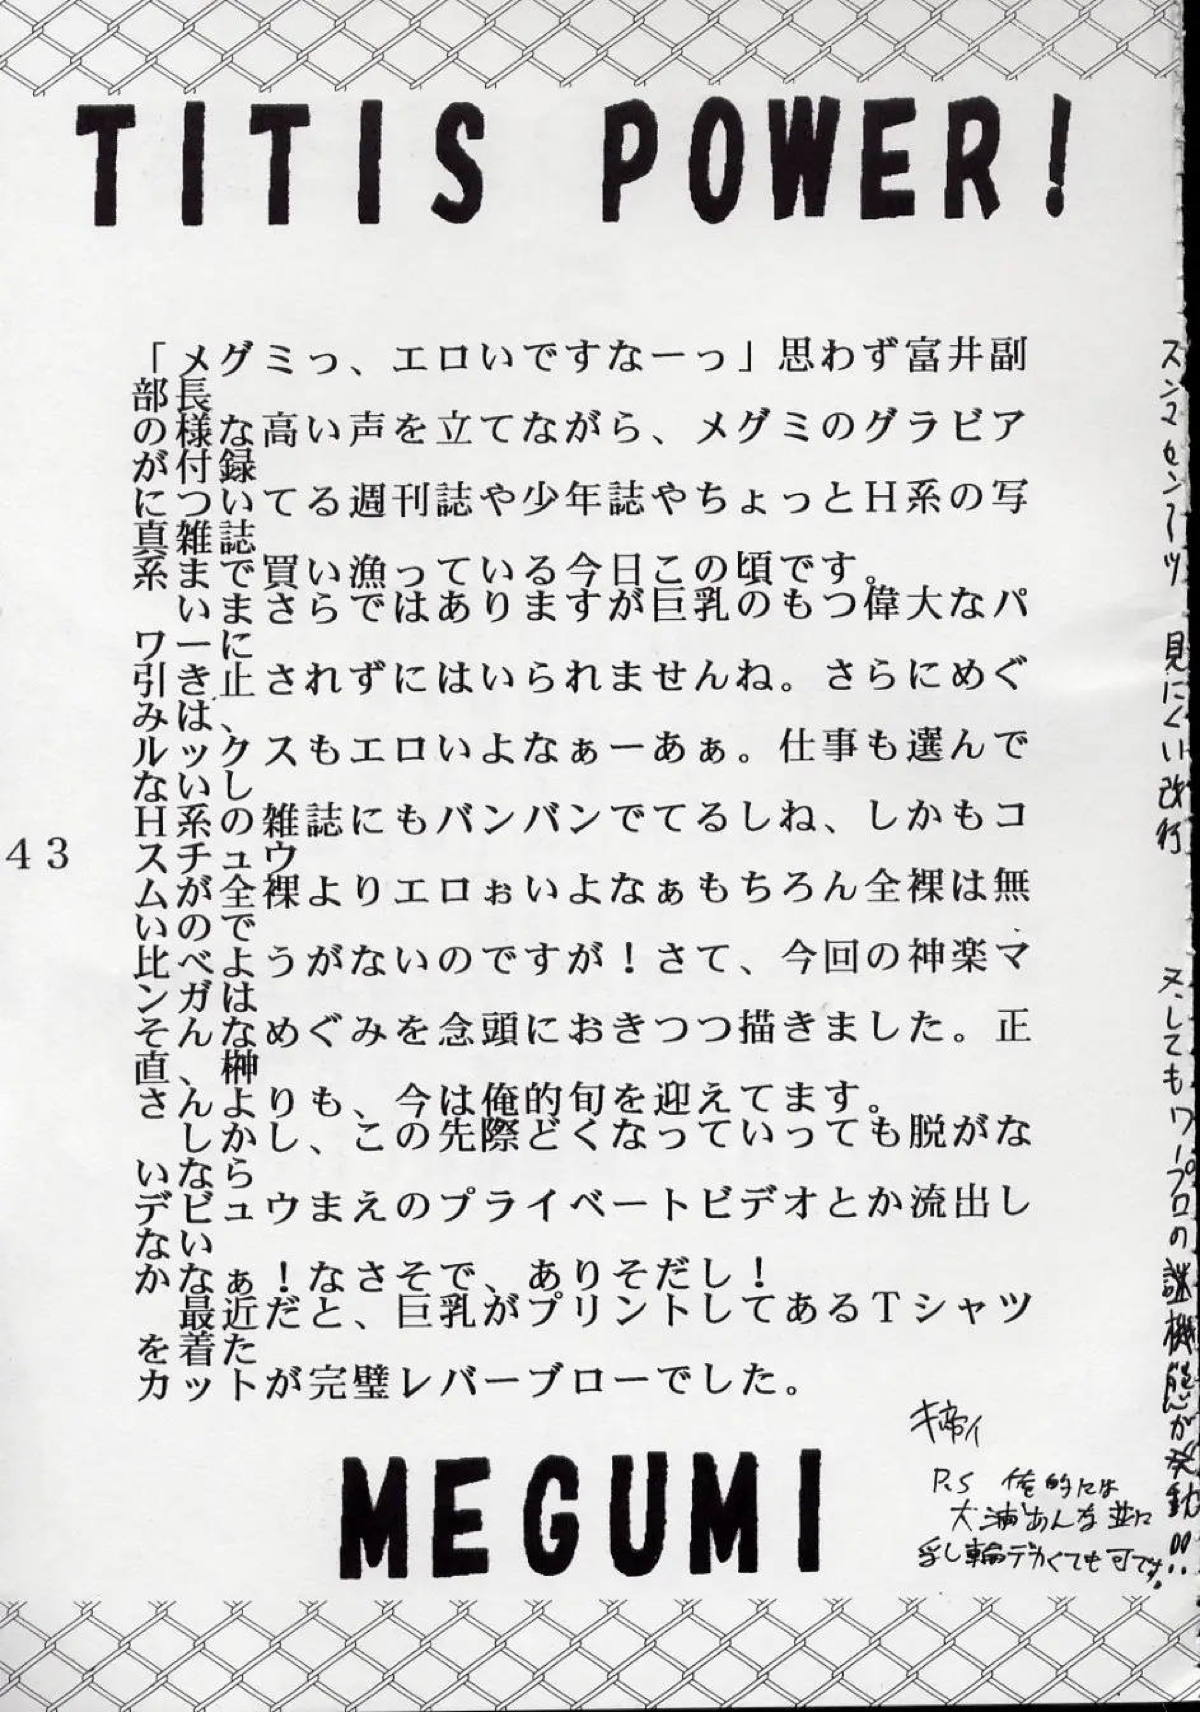 TITIS POWER!
「メグミっ、エロいですなーっ」思わず富井副
部長
の様な高い声を立てながら、メグミのグラビア
が付録
についてる週刊誌や少年誌やちょっとH系の写
真雑誌
系まで買い漁っている今日この頃です。
いまさらではありますが巨乳のもつ偉大なパ
ワーに
引き止されずにはいられませんね。さらにめぐ
みは、
ルックスもエロいよなぁーあぁ。仕事も選んで
ないし
H系の雑誌にもバンバンでてるしね、しかもコ
スチュウ
ムが全裸よりエロぉいよなぁもちろん全裸は無
いので
比べようがないのですが!さて、今回の神楽マ
ンガは
そんなめぐみを念頭におきつつ描きました。正
直、榊
さんよりも、今は俺的旬を迎えてます。
しかし、この先際どくなっていっても脱がな
いなら
デビュウまえのプライベートビデオとか流出し
ない
かなぁ!なさそで、ありそだし!
最近だと、巨乳がプリントしてあるTシャツ
を着た
カットが完璧レバーブローでした。
MEGUMI
P.S 俺的には
大浦あんな並に
乳輪デカくても可です。
スンマセンーッ 見にくい改行
又してもワープロの謎機能が発動!!
43